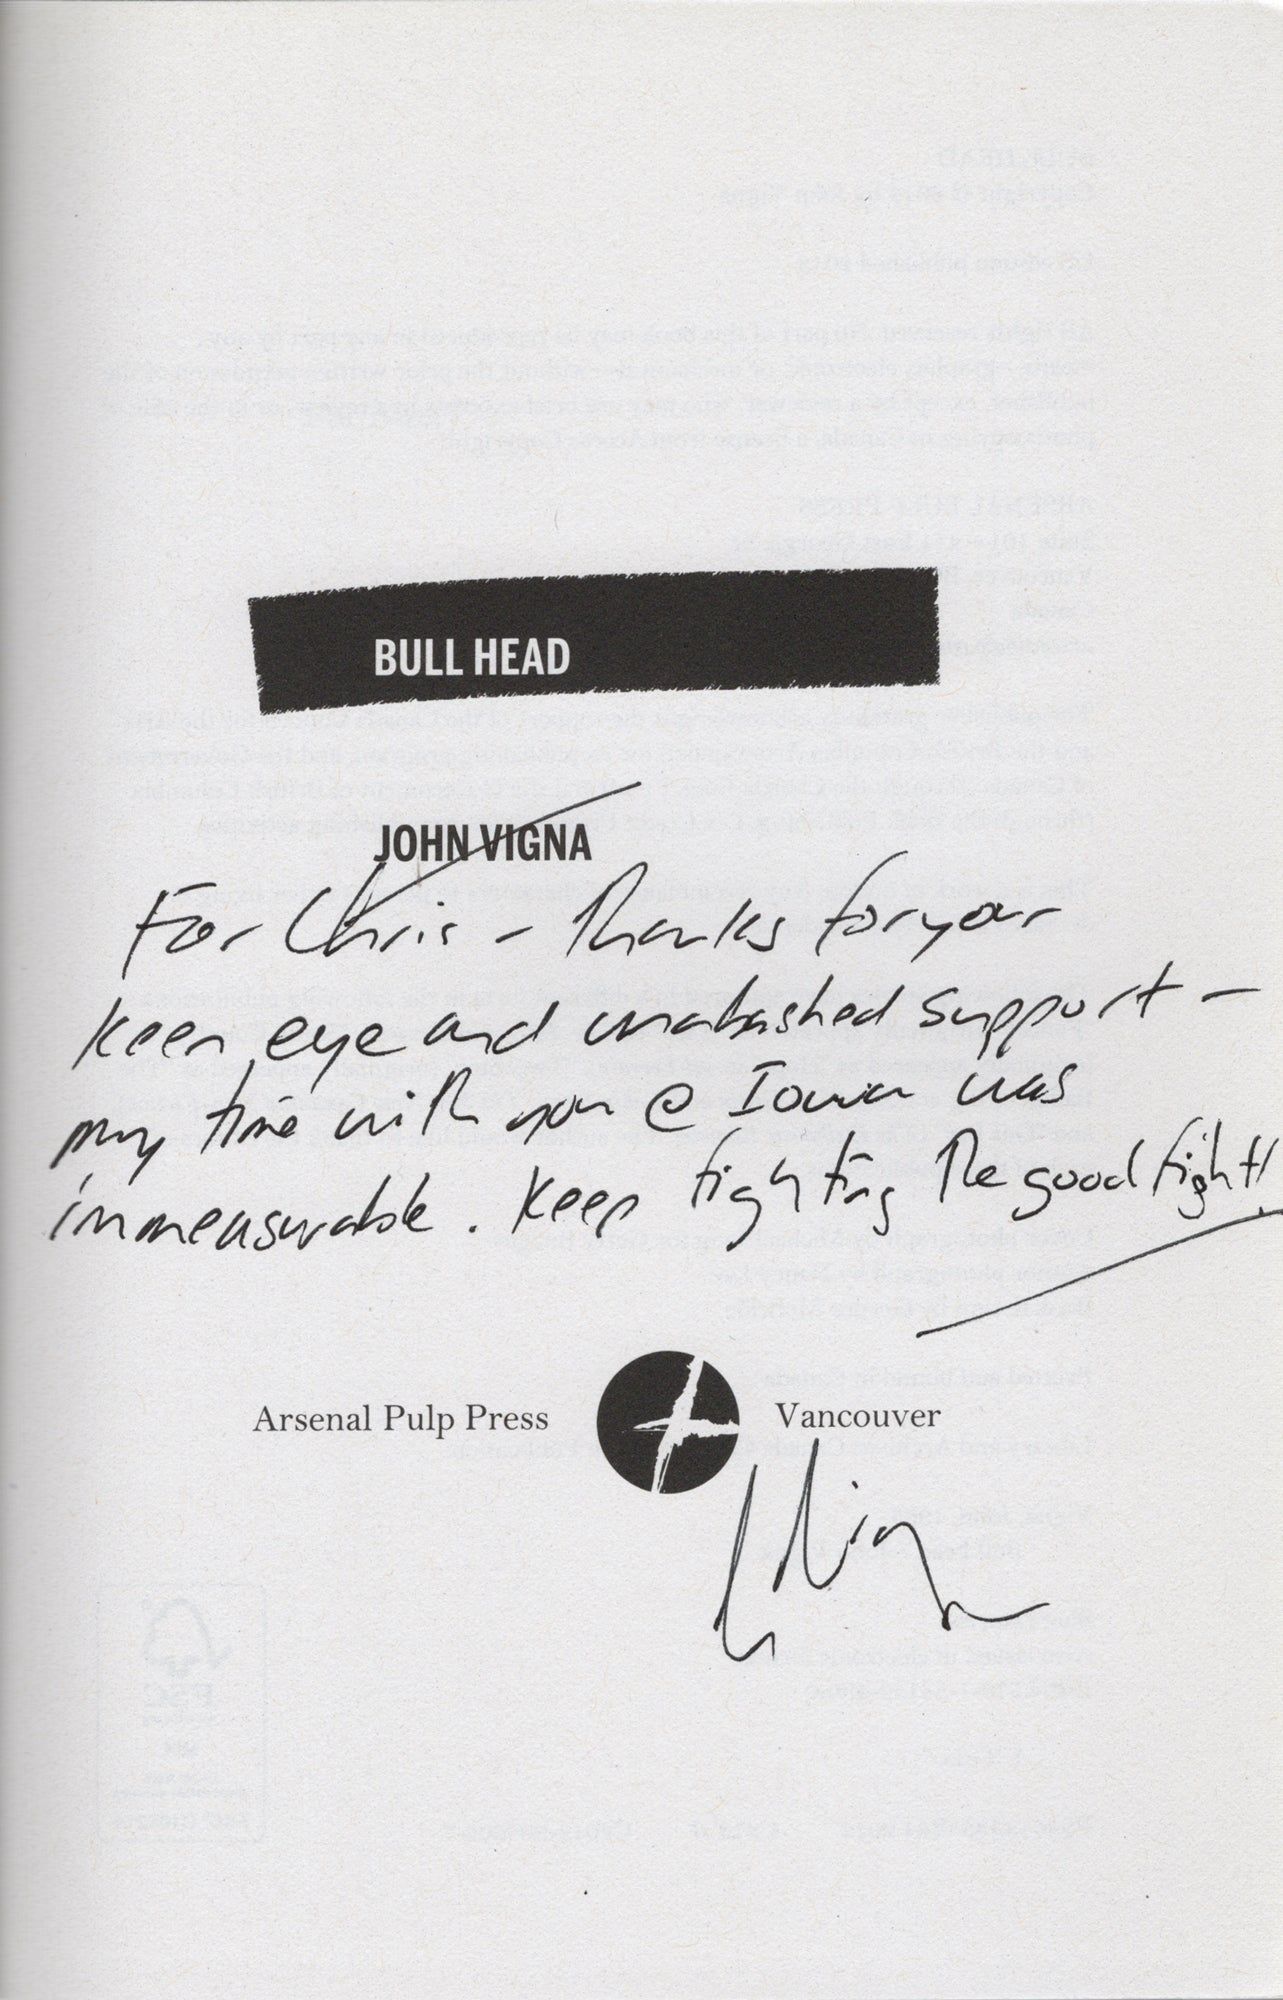 BULL HEAD
JOHN VIGNA
For Chris - Thanks for your
keen eye and unabashed support -
my time with you @ Iowa was
immeasurable. Keep fighting the good fight!
Arsenal Pulp Press Vancouver